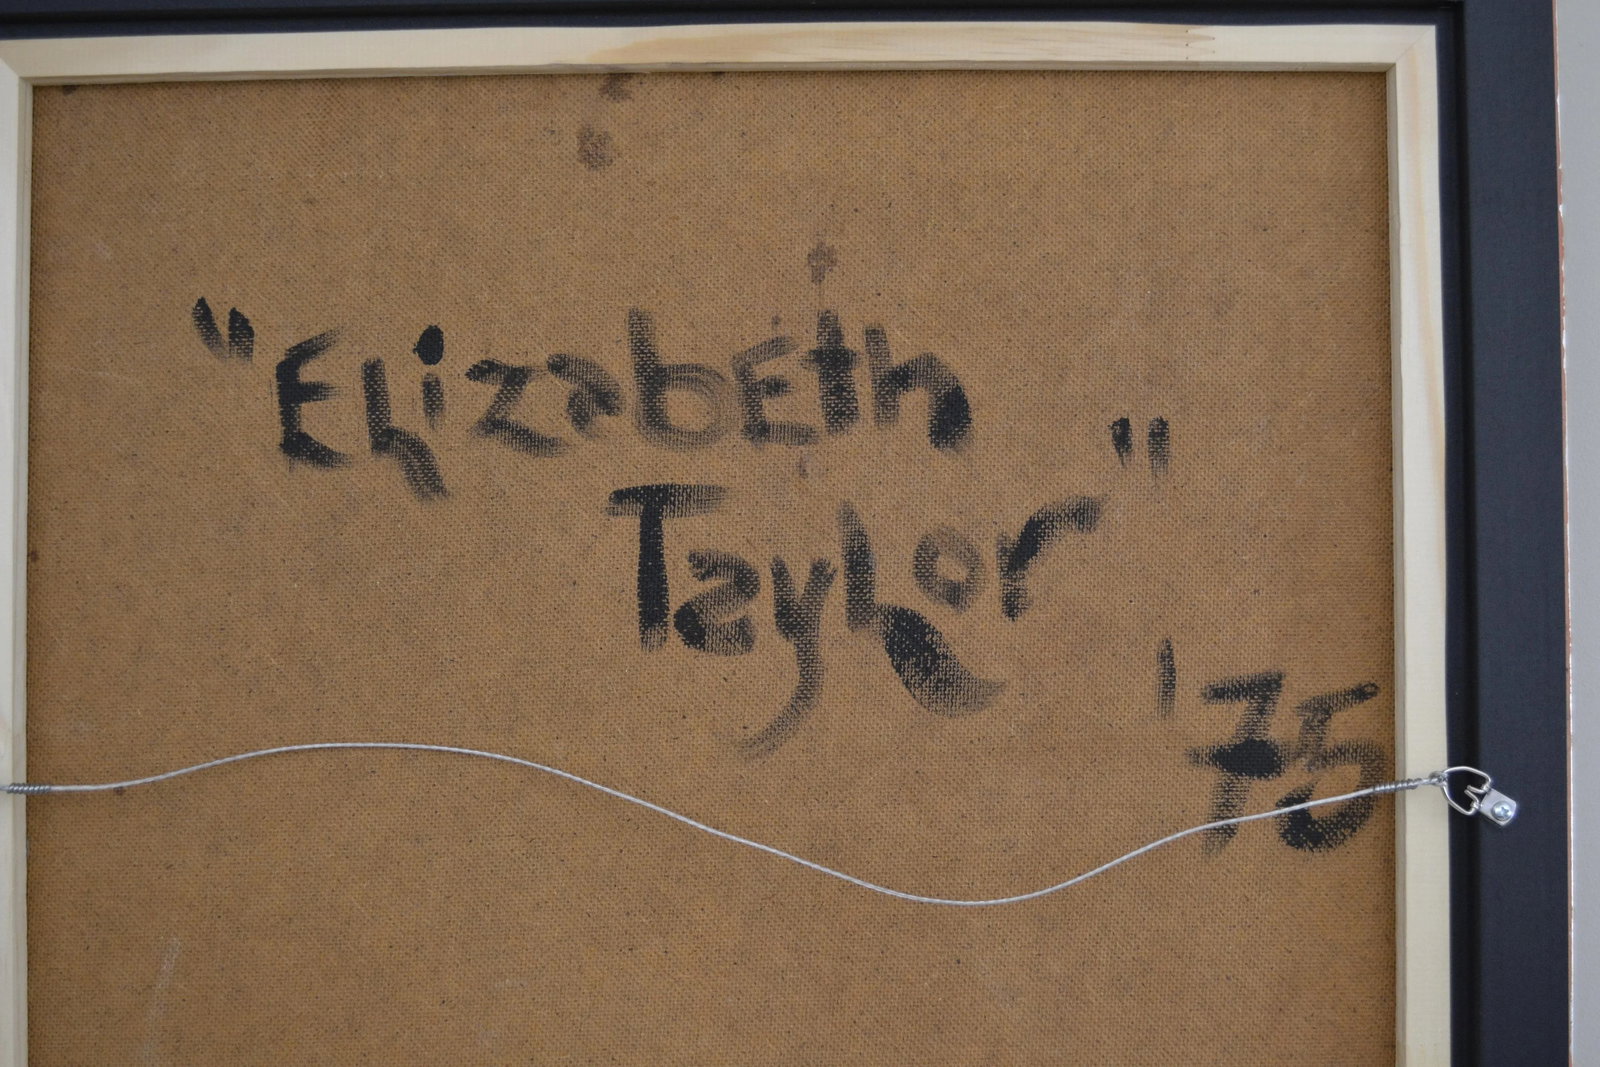 "Elizabeth
Taylor"
'75